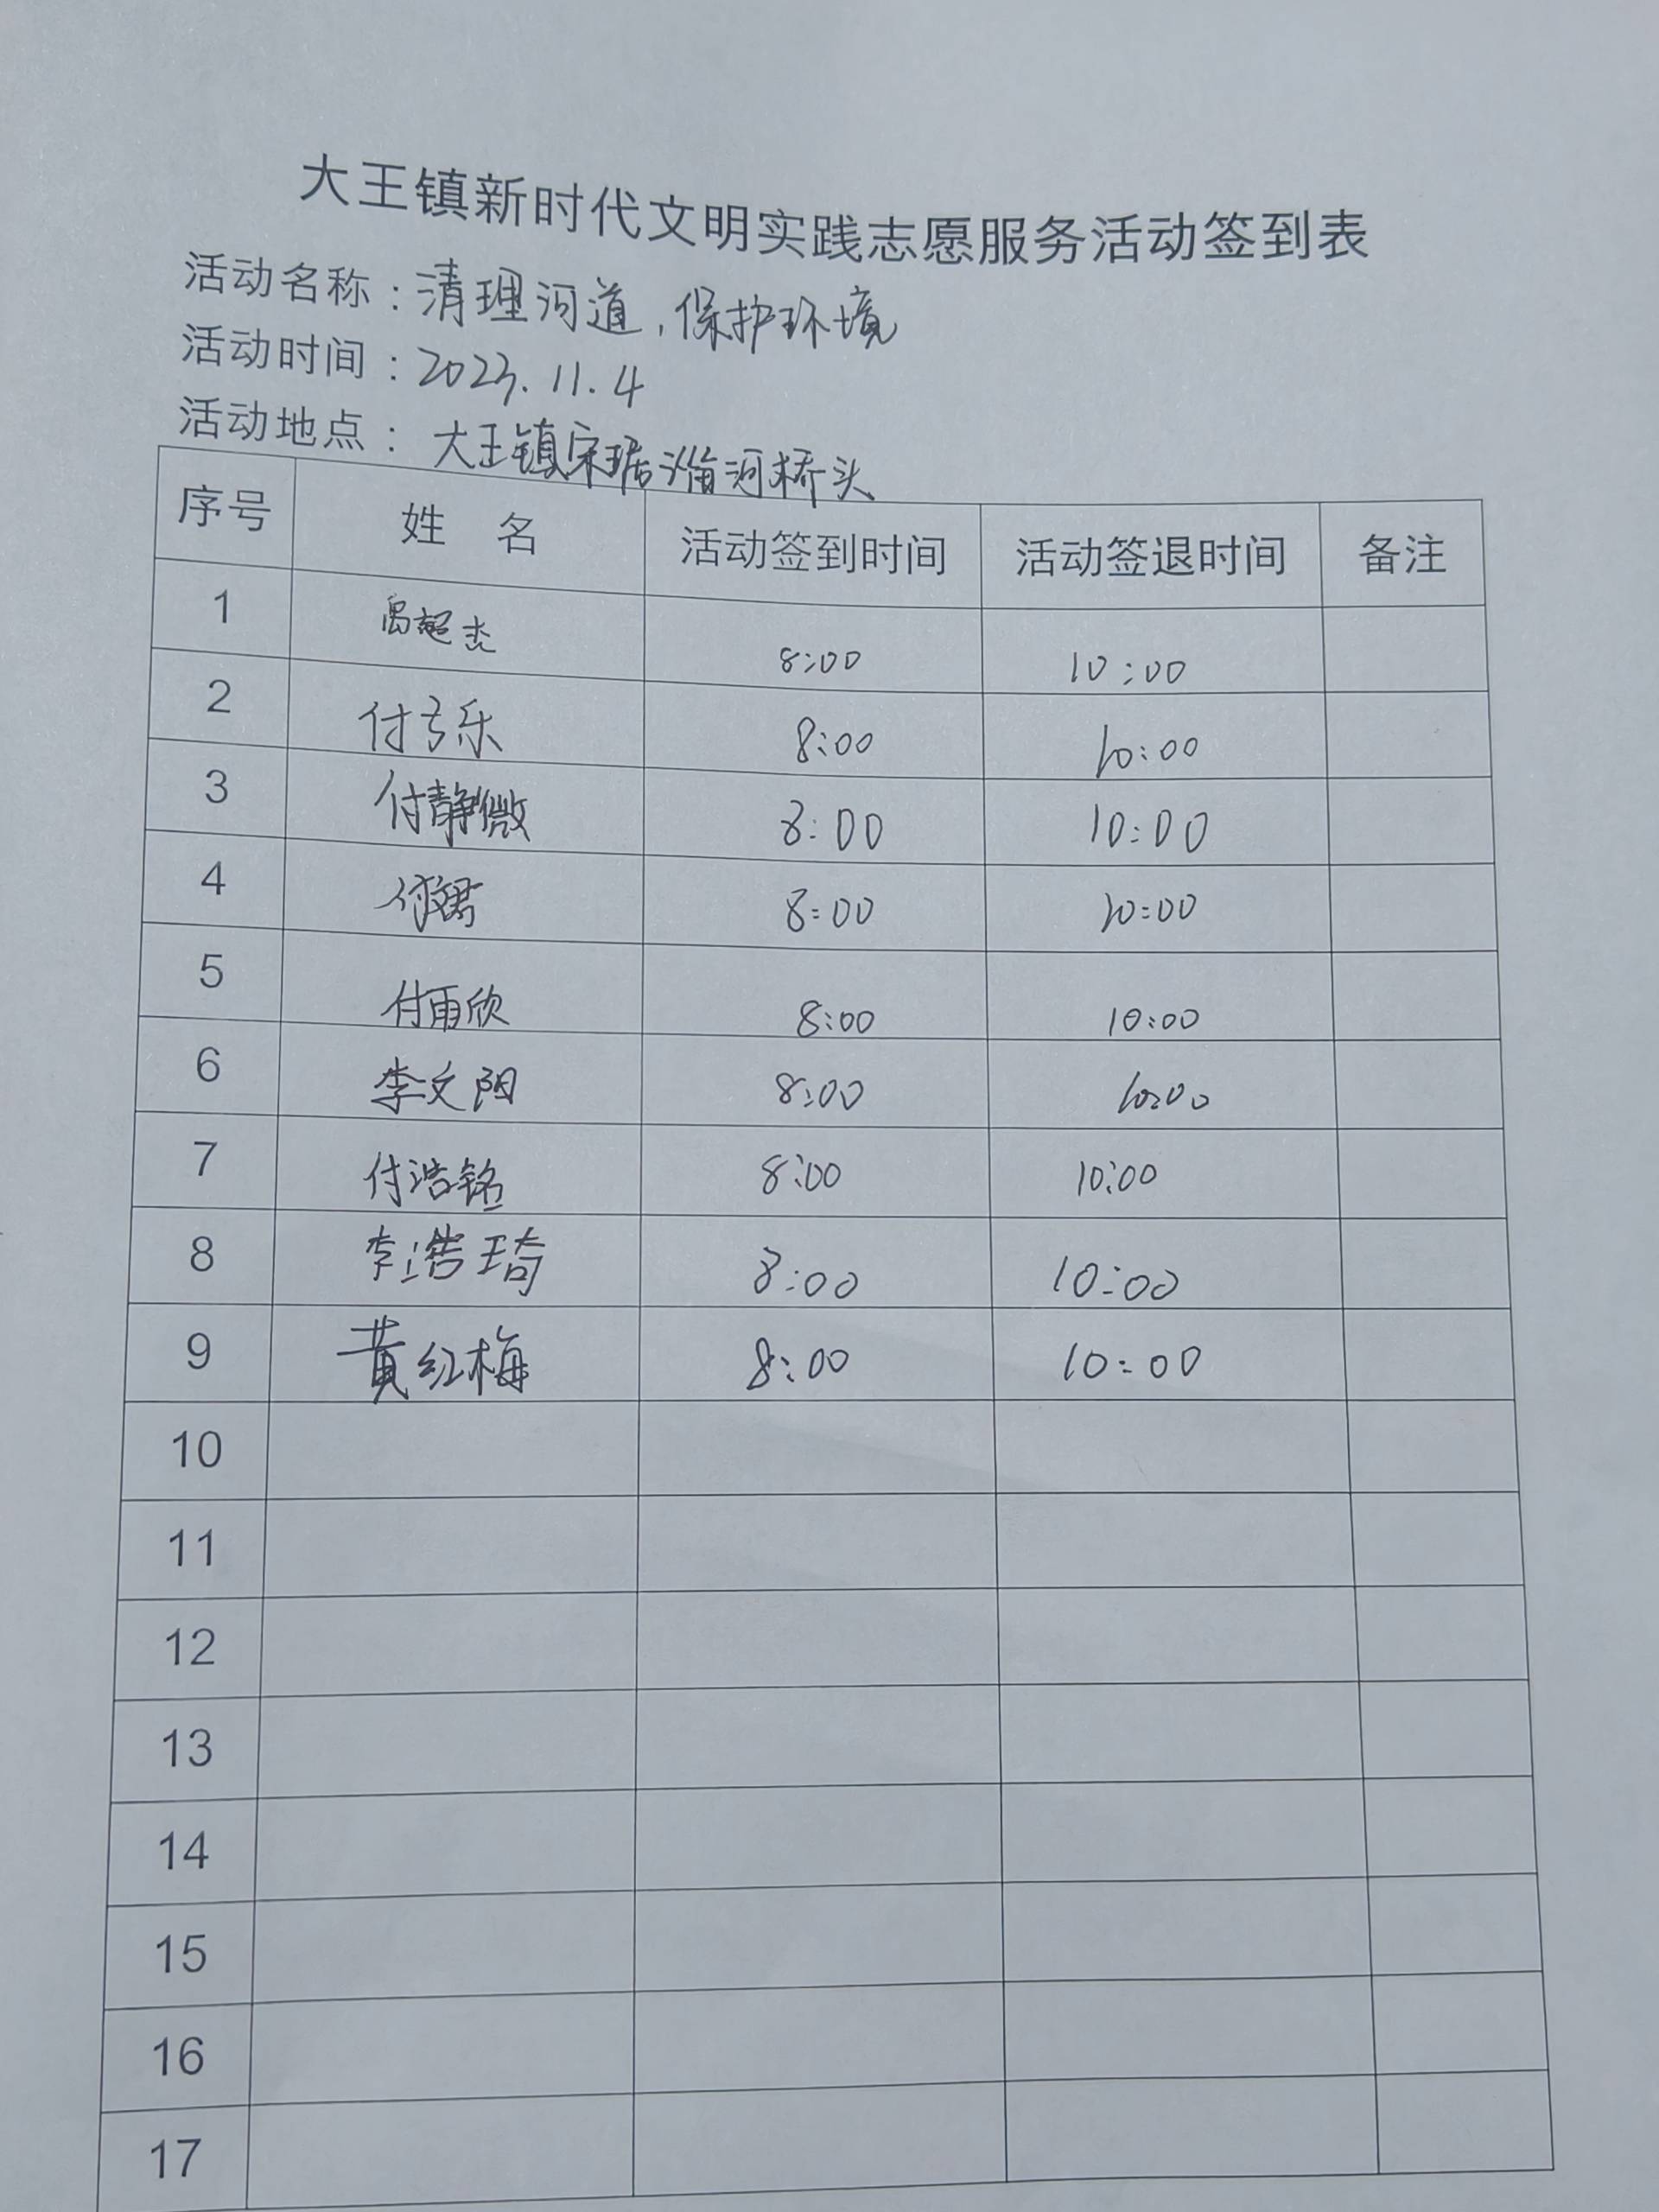 大王镇新时代文明实践志愿服务活动签到表
活动名称：清理河道，保护环境
活动时间：2023.11.4
活动地点：大王镇宋琚淄河桥头
序号 姓 名 活动签到时间 活动签退时间 备注
1 超杰 8:00 10:00
2 付乐 8:00 10:00
3 付静微 8:00 10:00
4 付 8:00 10:00
5 付雨欣 8:00 10:00
6 李文阳 8:00 10:00
7 付浩铭 8:00 10:00
8 李浩琦 8:00 10:00
9 黄红梅 8:00 10:00
10
11
12
13
14
15
16
17